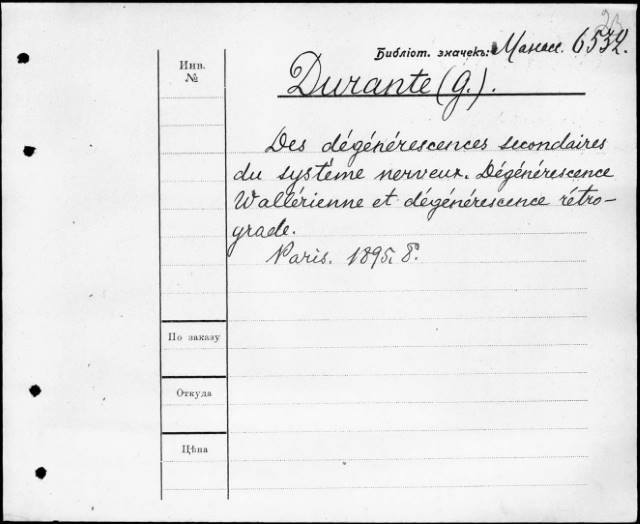 Библіот. значекъ: Манас. 6532.
Инв.
№
Durante (G.).
Des dégénérescences secondaires
du système nerveux. Dégénérescence
Wallérienne et dégénérescence rétro-
grade.
Paris. 1895. 8.
По заказу
Откуда
Цѣна